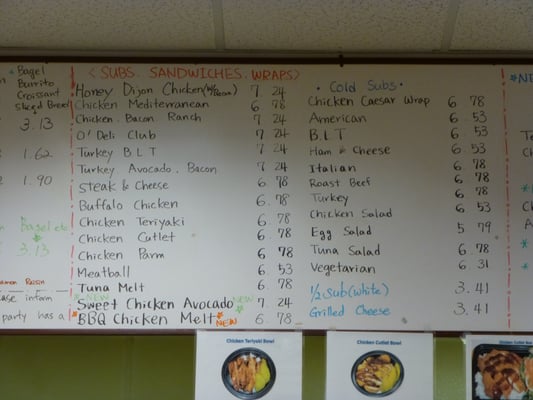 Bagel
Burrito
Croissant
Sliced Bread
3.13
1.62
1.90
Bagel etc
3.13
Raisin
inform
party has a
< SUBS. SANDWICHES. WRAPS >
Honey Dijon Chicken 7 24
Chicken Mediterranean 6 78
Chicken. Bacon Ranch 7 24
O' Deli Club 7 24
Turkey B.L.T 7 24
Turkey Avocado. Bacon 7 24
Steak & Cheese 6. 78
Buffalo Chicken 6. 78
Chicken Teriyaki 6. 78
Chicken Cutlet 6. 78
Chicken Parm 6 78
Meatball 6. 53
Tuna Melt 6. 78
NEW
Sweet Chicken Avocado NEW 7. 24
BBQ Chicken Melt NEW 6. 78
• Cold Subs •
Chicken Caesar Wrap 6. 78
American 6. 53
B.L.T 6. 53
Ham & Cheese 6. 53
Italian 6. 78
Roast Beef 6. 78
Turkey 6. 78
Chicken Salad 6. 53
Egg Salad 5 79
Tuna Salad 6. 78
Vegetarian 6 31
1/2 Sub (white) 3. 41
Grilled Cheese 3. 41
Chicken Teriyaki Bowl
Chicken Cutlet Bowl